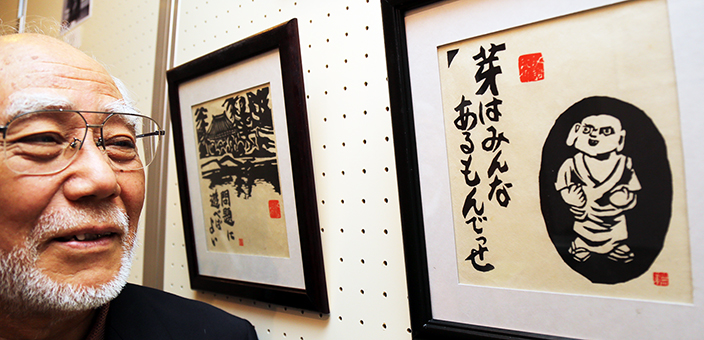 芽はみんな
あるもんでっせ
問題に
遊べば